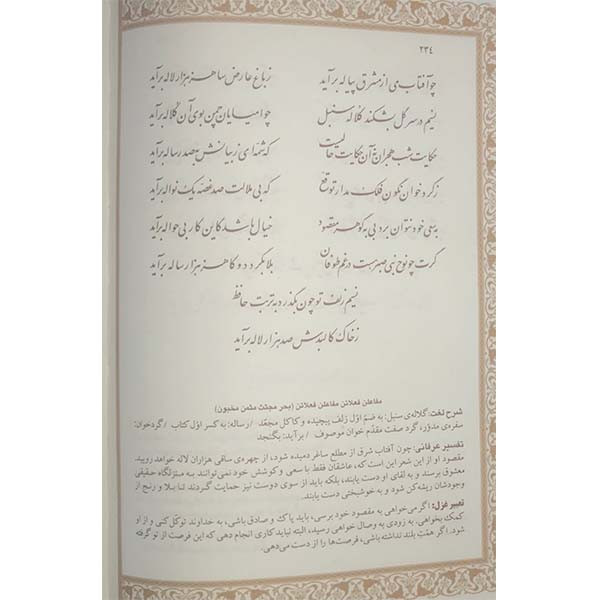 ۲۳۴
چو آفتاب می از مشرق پیاله برآید
ز باغ عارض ساقی هزار لاله برآید
نسیم در سر گل بشکند کلاله سنبل
چو از میان چمن بوی آن کلاله برآید
حکایت شب هجران نه آن حکایت حالیست
که شمه‌ای ز بیانش به صد رساله برآید
ز گرد خوان نگون فلک مدار توقع
که بی ملالت صد غصه یک نواله برآید
به سعی خود نتوان برد پی به گوهر مقصود
خیال باشد کاین کار بی حواله برآید
گرت چو نوح نبی صبر هست در غم طوفان
بلا بگردد و کام هزار ساله برآید
نسیم زلف تو چون بگذرد به تربت حافظ
ز خاک کالبدش صد هزار لاله برآید
مفاعلن فعلاتن مفاعلن فعلاتن (بحر مجتث مثمن مخبون)
شرح لغت: گلاله‌ی سنبل: به ضمّ اوّل زلف پیچیده و کاکل مجعّد / رساله: به کسر اوّل کتاب / گردخوان:
سفره‌ی مدوّر، گرد صفت مقدّم خوان موصوف / برآید: بگنجد
تفسیر عرفانی: چون آفتاب شرق از مطلع ساغر دمیده شود، از چهره‌ی ساقی هزاران لاله خواهد رویید.
مقصود او از این شعر این است که، عاشقان فقط با سعی و کوشش خود نمی‌توانند به منزلگاه حقیقی
معشوق برسند و به لقای او دست یابند، بلکه باید از سوی دوست نیز حمایت گردند تا بلا و رنج از
وجودشان ریشه‌کن شود و به خوشبختی دست یابند.
تعبیر غزل: اگر می‌خواهی به مقصود خود برسی، باید پاک و صادق باشی، به خداوند توکّل کنی و از او
کمک بخواهی. به زودی به وصال خواهی رسید، البته نباید کاری انجام دهی که این فرصت از تو گرفته
شود. اگر همّت بلند نداشته باشی، فرصت‌ها را از دست می‌دهی.